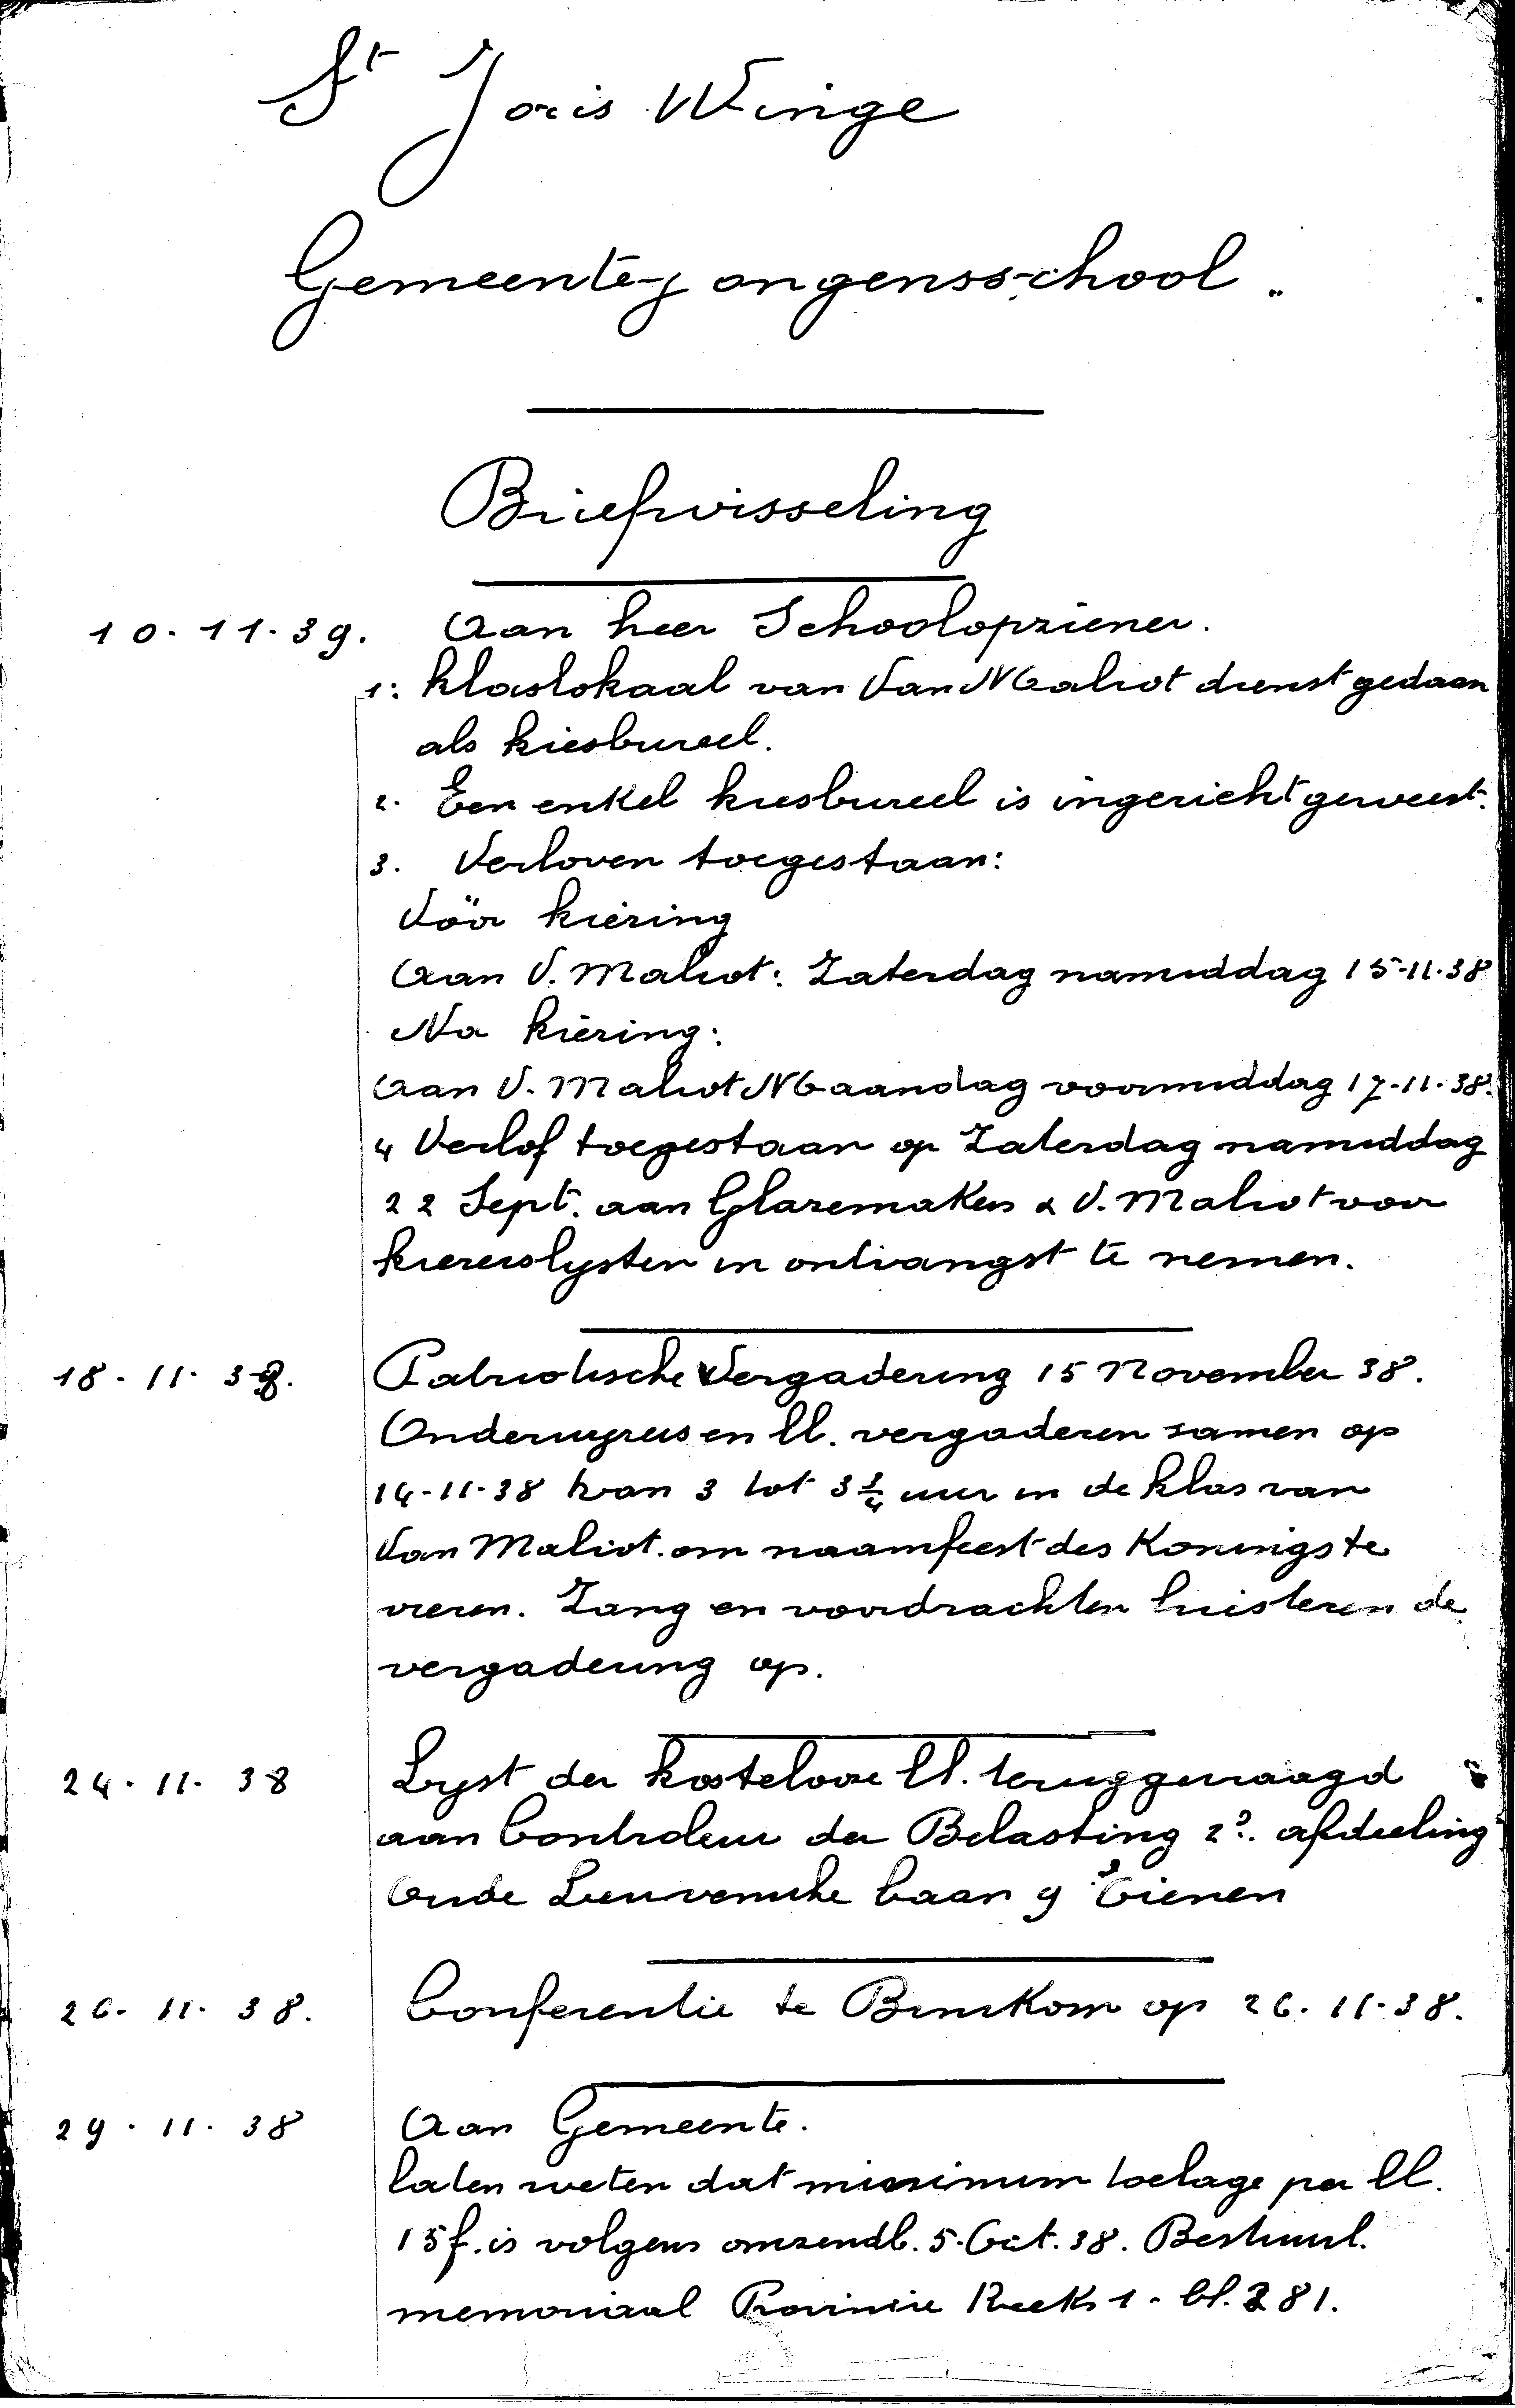 St Joris Winge
Gemeente-jongensschool.
Briefwisseling
10.11.39. Aan heer Schoolopziener.
1: Klaslokaal van Van Maliot dienst gedaan
als kiesbureel.
2. Een enkel kiesbureel is ingericht geweest.
3. Verloven toegestaan:
Vöör kiezing
Aan V. Maliot: Zaterdag namiddag 15-11-38
Na kiezing:
Aan V. Maliot Maandag voormiddag 17-11-38.
4 Verlof toegestaan op Zaterdag namiddag
22 Sept. aan Glazemakers & V. Maliot voor
kiezerslysten in ontvangst te nemen.
18-11-38. Patriotische Vergadering 15 November 38.
Onderwyzers en ll. vergaderen samen op
14-11-38 van 3 tot 3 3/4 uur in de klas van
Van Maliot. om naamfeest des Konings te
vieren. Zang en voordrachten luisteren de
vergadering op.
24-11-38 Lyst der kostelooze ll. teruggevraagd
aan Controleur der Belasting 2e. afdeeling
Oude Leuvensche baan 9 Tienen
26-11-38. Conferentie te Binkom op 26-11-38.
29-11-38 Aan Gemeente.
laten weten dat minimum toelage per ll.
15 f. is volgens omzendb. 5. Oct. 38. Bestuurl.
memoriaal Provincie Reeks 1 - bl. 281.